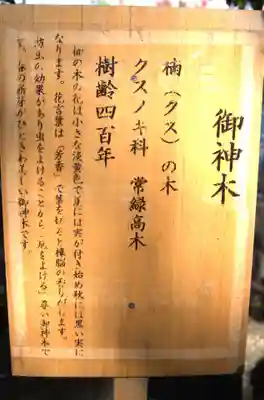 御神木
楠（クス）の木
クスノキ科 常緑高木
樹齢四百年
楠の木の花は小さな淡黄色で夏には実が付き始め秋には黒い実に
なります。花言葉は「芳香」で葉をもむと樟脳の香りがします。
防虫の効果があり虫をよけることから「厄をよける」尊い御神木で
す。春の新芽がひときわ美しい御神木です。